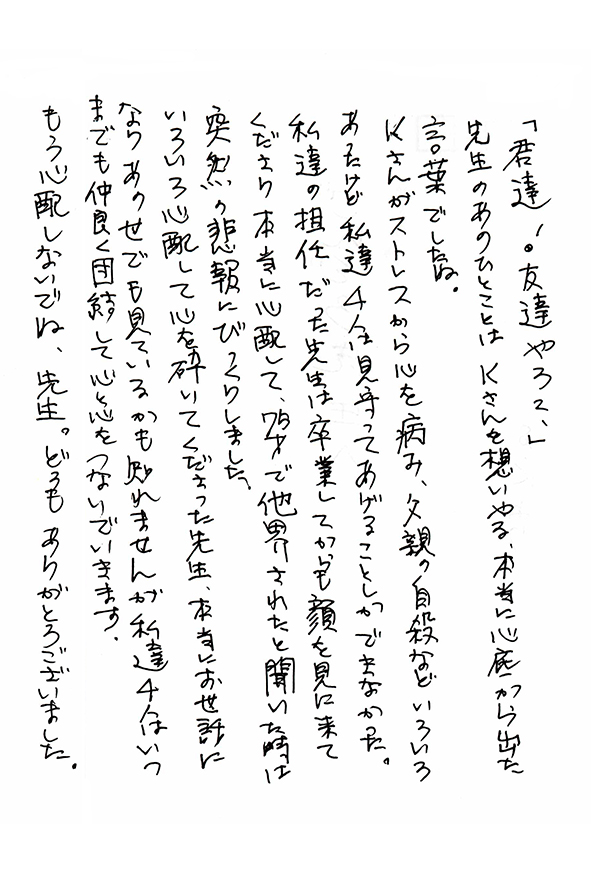 「君達!。友達やろっ、」
先生のあのひとことはKさんを想いやる、本当に心底から出た
言葉でしたね。
Kさんがストレスから心を病み、父親の自殺などいろいろ
あったけど私達4人は見守ってあげることしかできなかった。
私達の担任だった先生は卒業してからも顔を見に来て
くださり本当に心配して、75才で他界されたと聞いた時は
突然の悲報にびっくりしました。
いろいろ心配して心を砕いてくださった先生、本当にお世話に
なりあの世でも見ているかも知れませんが私達4人はいつ
までも仲良く団結して心と心をつないでいきます。
もう心配しないでね、先生。どうもありがとうございました。